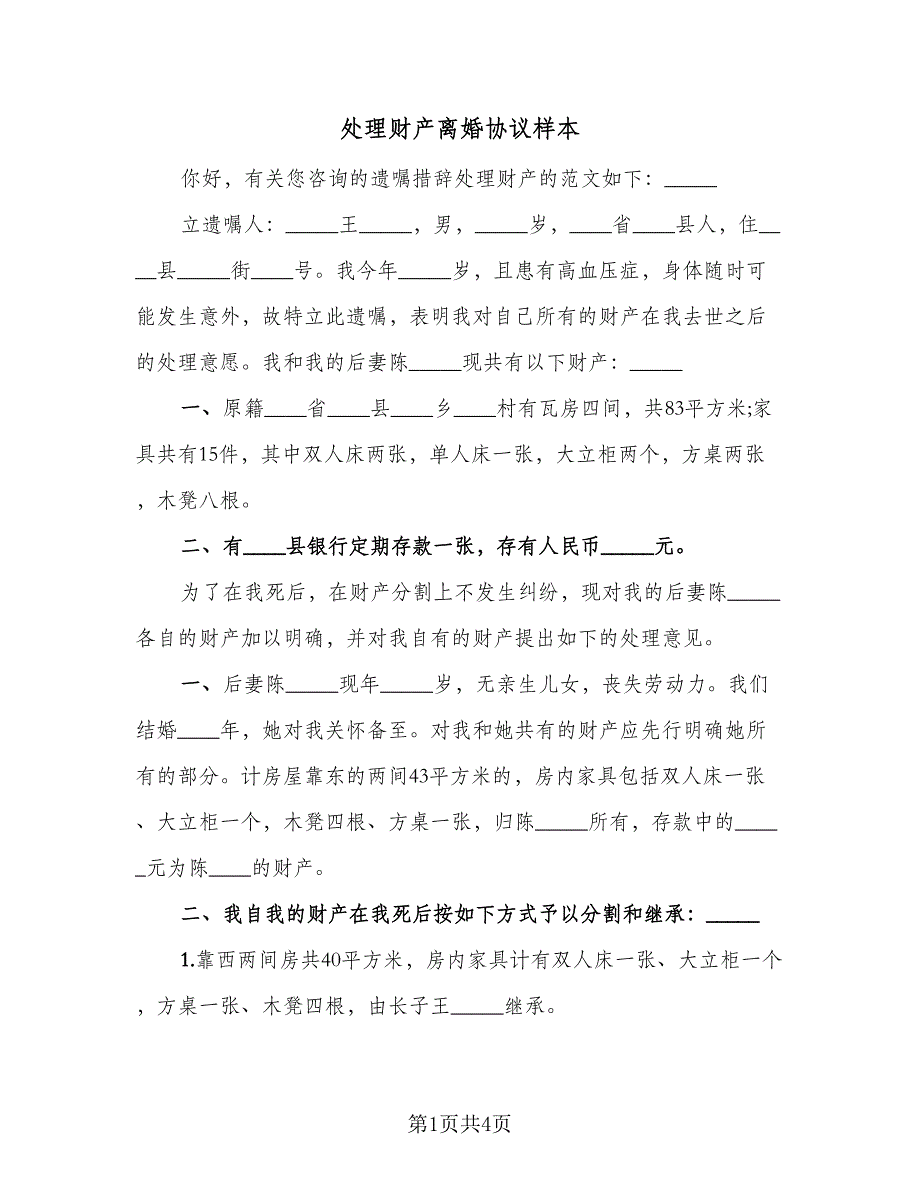 处理财产离婚协议样本
你好，有关您咨询的遗嘱措辞处理财产的范文如下：_____
立遗嘱人：_____王_____，男，_____岁，____省____县人，住__
__县_____街____号。我今年_____岁，且患有高血压症，身体随时可
能发生意外，故特立此遗嘱，表明我对自己所有的财产在我去世之后
的处理意愿。我和我的后妻陈_____现共有以下财产：_____
一、原籍____省____县____乡____村有瓦房四间，共83平方米;家
具共有15件，其中双人床两张，单人床一张，大立柜两个，方桌两张
，木凳八根。
二、有____县银行定期存款一张，存有人民币_____元。
为了在我死后，在财产分割上不发生纠纷，现对我的后妻陈_____
各自的财产加以明确，并对我自有的财产提出如下的处理意见。
一、后妻陈_____现年_____岁，无亲生儿女，丧失劳动力。我们
结婚____年，她对我关怀备至。对我和她共有的财产应先行明确她所
有的部分。计房屋靠东的两间43平方米的，房内家具包括双人床一张
、大立柜一个，木凳四根、方桌一张，归陈_____所有，存款中的____
_元为陈____的财产。
二、我自我的财产在我死后按如下方式予以分割和继承：_____
1.靠西两间房共40平方米，房内家具计有双人床一张、大立柜一个
，方桌一张、木凳四根，由长子王_____继承。
第1页共4页